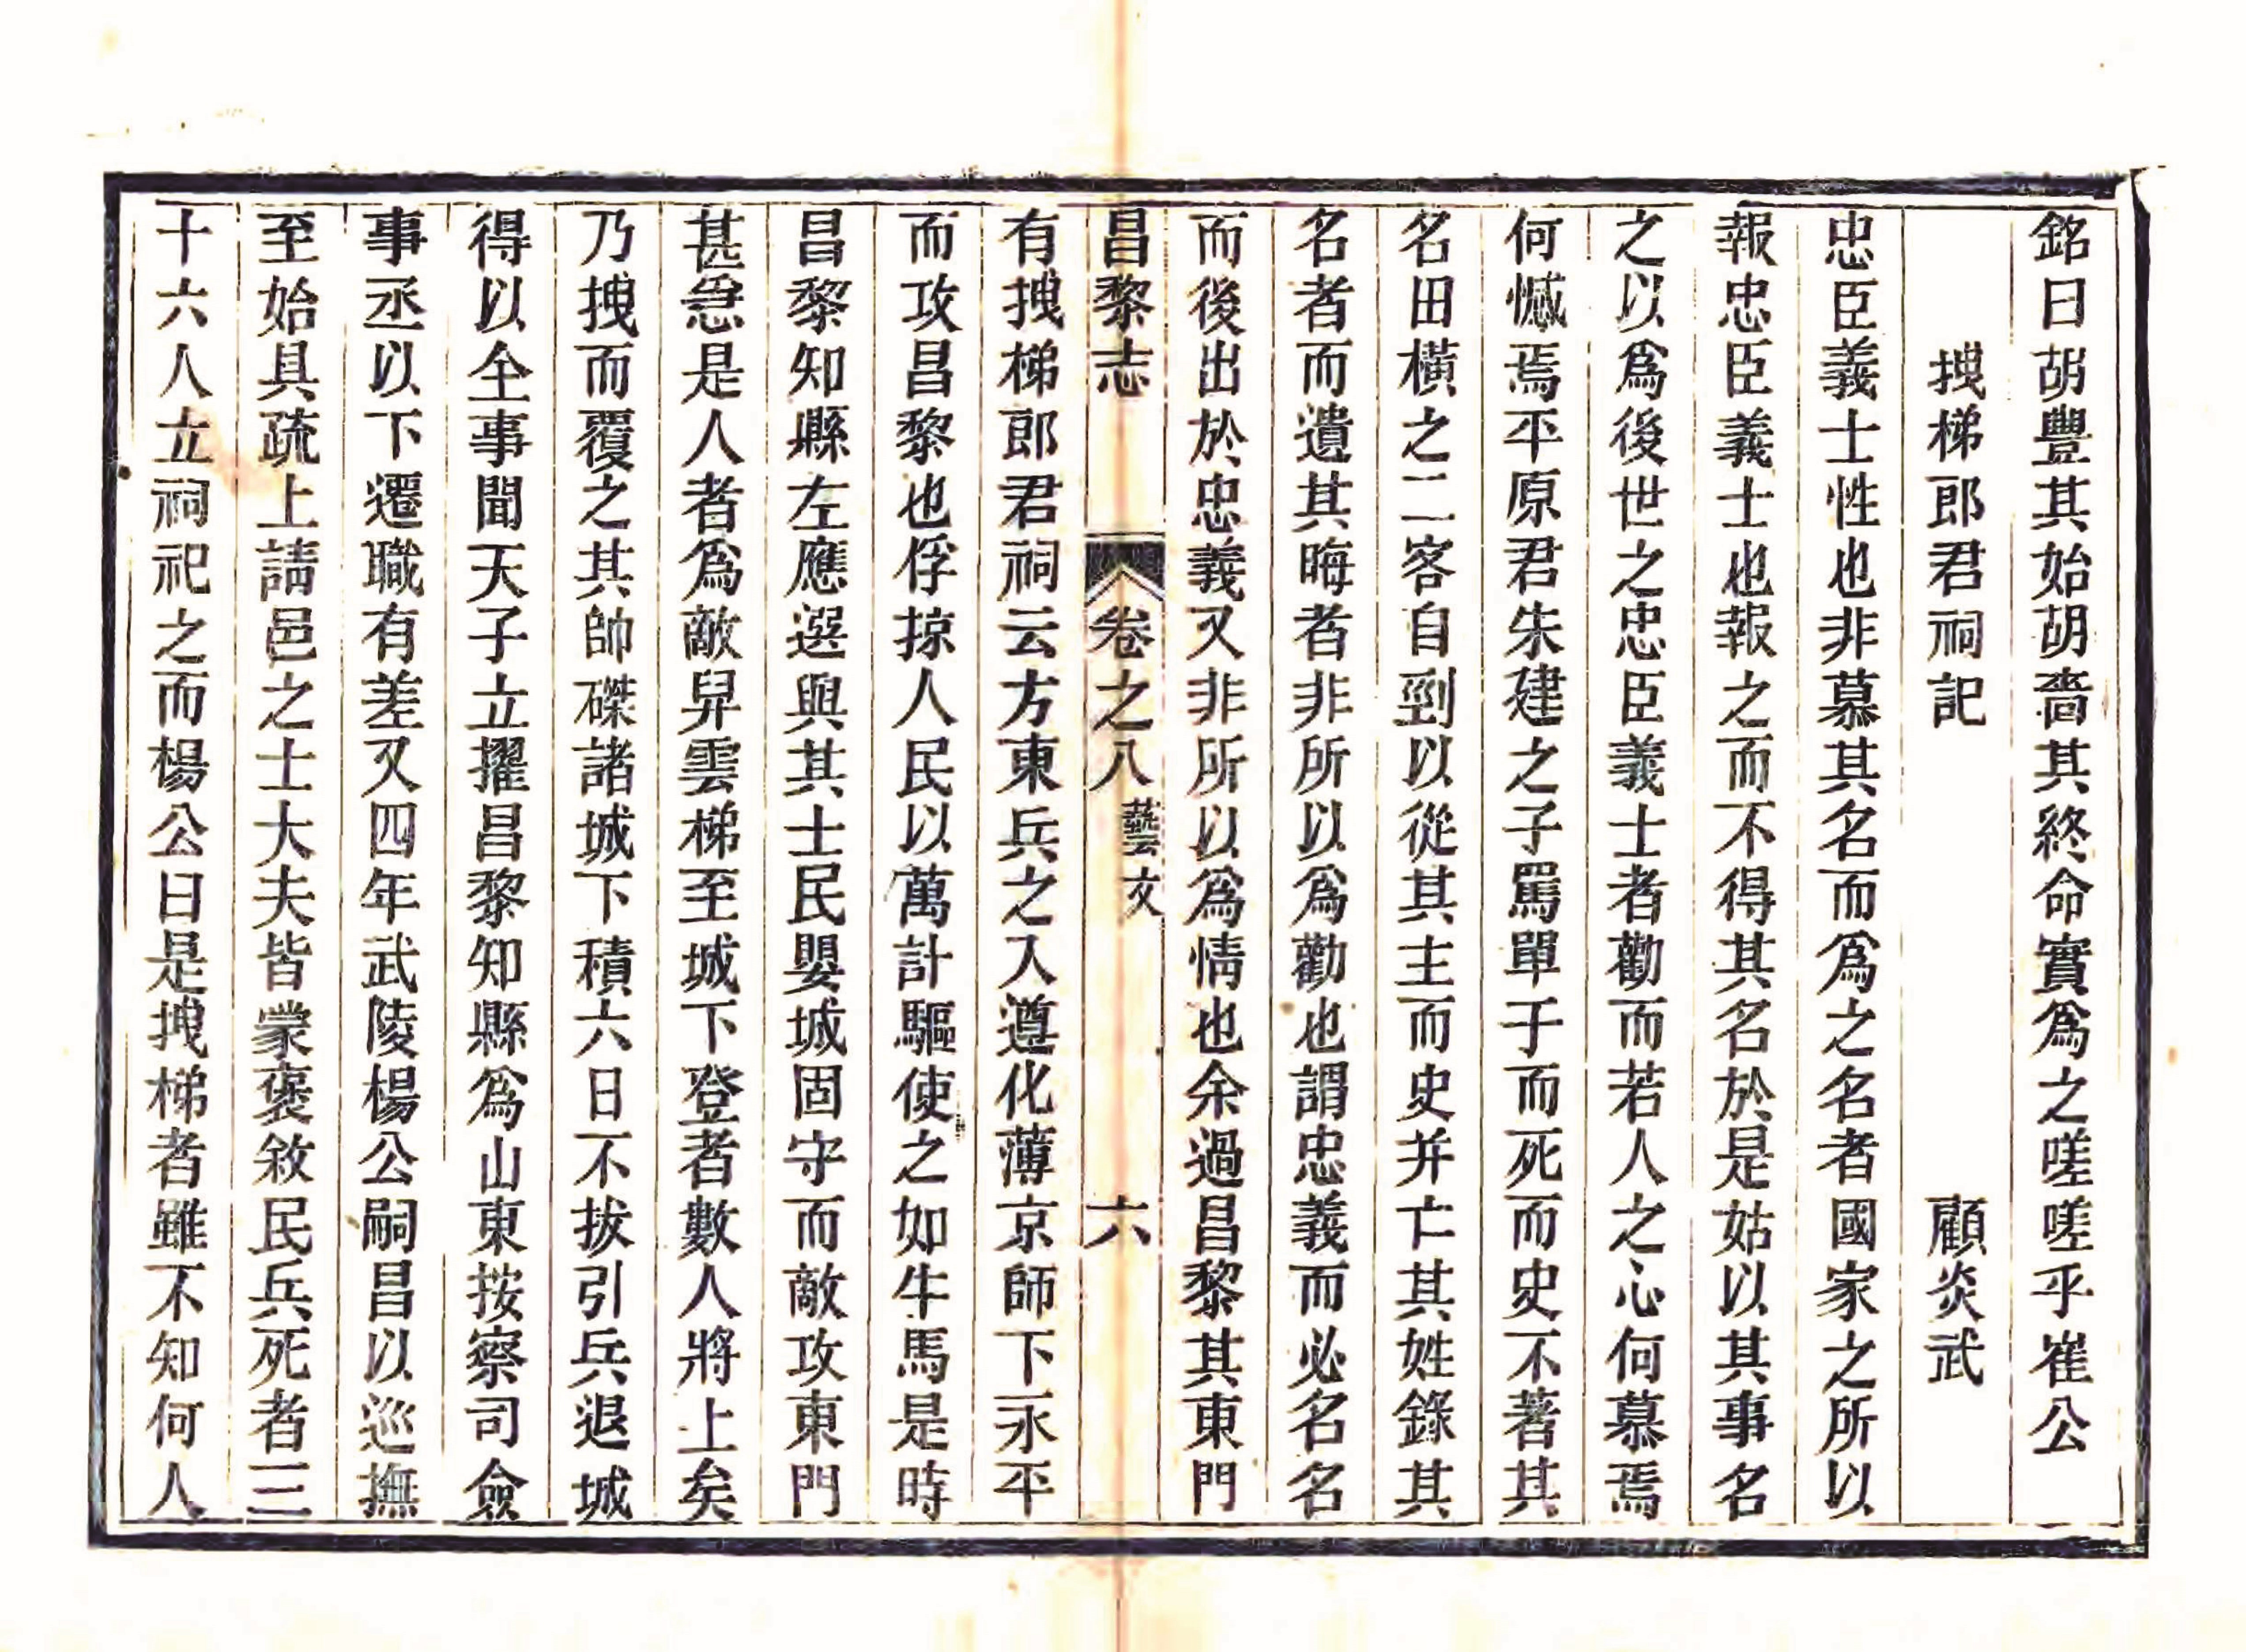 銘曰胡豐其始胡嗇其終命實爲之嗟嗟乎崔公
拽梯郎君祠記　顧炎武
忠臣義士性也非慕其名而爲之名者國家之所以
報忠臣義士也報之而不得其名於是姑以其事名
之以爲後世之忠臣義士者勸而若人之心何慕焉
何憾焉平原君朱建之子罵單于而死而史不著其
名田橫之二客自剄以從其主而史并亡其姓錄其
名者而遺其晦者非所以爲勸也謂忠義而必名名
而後出於忠義又非所以爲情也余過昌黎其東門
昌黎志　卷之八　藝文　六
有拽梯郎君祠云方東兵之入遵化薄京師下永平
而攻昌黎也俘掠人民以萬計驅使之如牛馬是時
昌黎知縣左應選與其士民嬰城固守而敵攻東門
甚急是人者爲敵舁雲梯至城下登者數人將上矣
乃拽而覆之其帥磔諸城下積六日不拔引兵退城
得以全事聞天子立擢昌黎知縣爲山東按察司僉
事丞以下遷職有差又四年武陵楊公嗣昌以巡撫
至始具疏上請邑之士大夫皆蒙褒敘民兵死者三
十六人立祠祀之而楊公曰是拽梯者雖不知何人